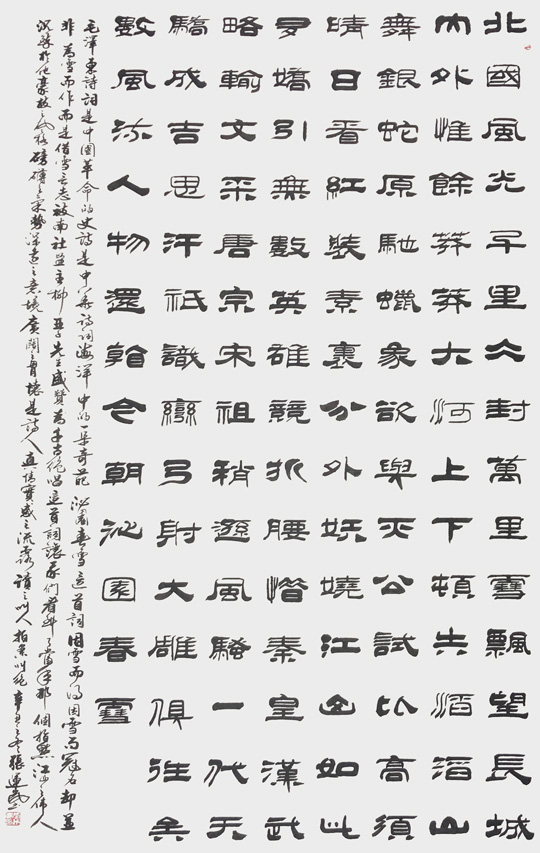 北國風光千里冰封萬里雪飄望長城
內外惟餘莽莽大河上下頓失滔滔山
舞銀蛇原馳蠟象欲與天公試比高須
晴日看紅裝素裹分外妖嬈江山如此
多嬌引無數英雄競折腰惜秦皇漢武
略輸文采唐宗宋祖稍遜風騷一代天
驕成吉思汗祇識彎弓射大雕俱往矣
數風流人物還看今朝沁園春雪
毛澤東詩詞是中國革命的史詩是中華詩詞海洋中的一朵奇葩沁園春雪這首詞因雪而得因雪而冠名却並
非為雪而作而是借雪言志被南社盟主柳亞子先生盛贊為千古絕唱這首詞讓我們看到了當年那個指點江山之偉人
於他豪放之風格磅礴之氣勢深遠之意境廣闊之胸懷是詩人真情實感之流露讀之叫人拍案叫絕辛丑之冬張運